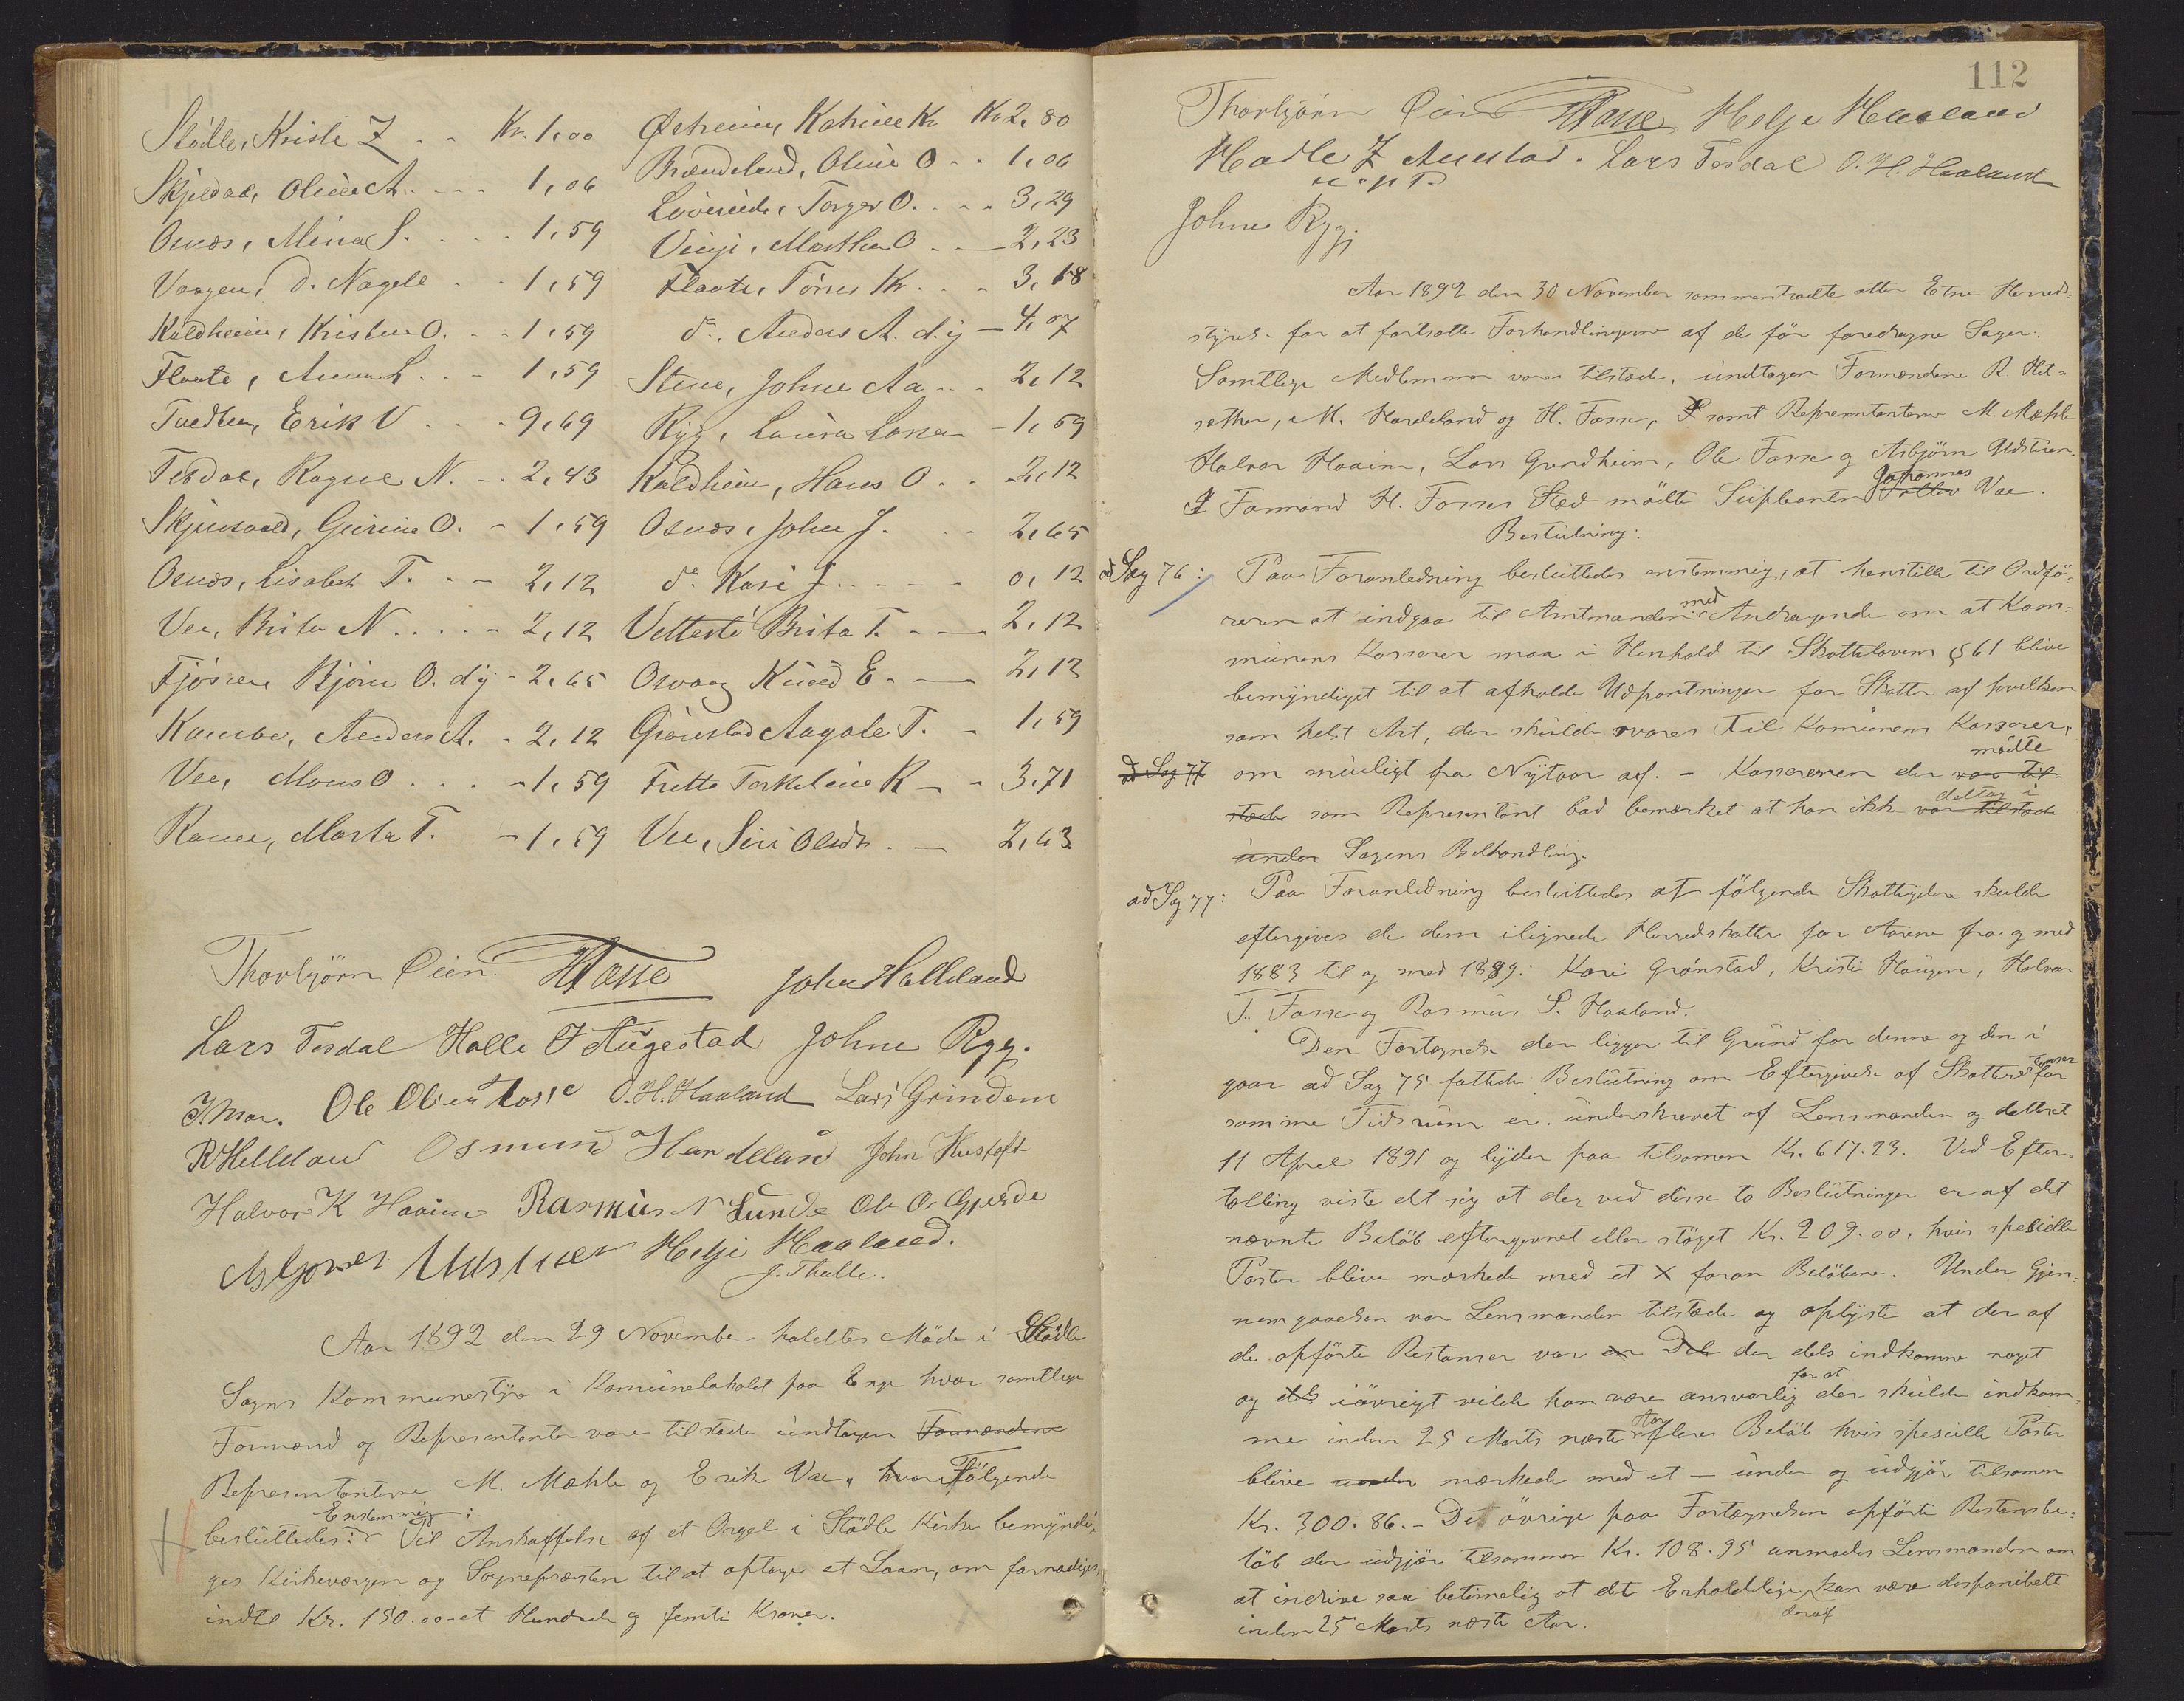 Stødle, Kristi Z . . Kr. 1,00
Skjeldal, Oline A. . . . 1,06
Osnes, Mina S. . . . 1,59
Vaagen, d. Nagell . . 1,59
Kaldheim, Kristine O. . . 1,59
Flaate, Anna L. . . 1,59
Tvedten, Erik V . . . 9,69
Tesdal, Ragne N. . . 2,43
Skjensvold, Gurine O. - 1,59
Osnes, Lisabet T. . - 2,12
Vee, Brita N . . . . - 2,12
Fjösne, Bjørn O. d.y - 2,65
Kambe, Anders A. - 2,12
Vee, Mons O . . . - 1,59
Ranee, Marta T. - 1,59
Østreim, Katrine Kr Kr 2,80
Brændeland, Oline O . . 1,06
Lövereide, Torger O. . . . 3,29
Vinje, Marthe O - 2,23
Flaate, Törres Kr. . . . 3,18
do. Anders A. d.y - 4,07
Stene, Johne Aa . . . 2,12
Ryg, Laura Larsen - 1,59
Kaldheim, Hans O . . 2,12
Osnes, John J. . . 2,65
do Kari J. . . . . 0,12
Vettestö Brita T. . - 2,12
Osvaag Knud E - - 2,12
Grönstad Aagate T. - 1,59
Fitte Torkeline K - - 3,71
Vee, Siri Olsdr. . - 2,63
Thorbjörn Øien. HFosse John Helleland
Lars Tesdal Halle J Augestad Johne Rygg.
J. Moe. Ole Olsen Fosse O. H. Haaland Lars Grindem
R Helleland Osmund Handeland John Hustoft
Halvor K Haaim Rasmus N Lunde Ole O. Gjerde
Asbjørn Udstuen Helje Haaland.
J. Thulle.
Aar 1892 den 29 November holdtes Møde i Stødle
Sogns Kommunestyre i Komünelokalet paa Enge hvor samtlige
Formænd og Repræsentanter vare tilstæde undtagen Formændene
Repræsentanterne M. Mæhle og Erik Vae, hvor Følgende
beslüttedes: Enstemmig: Til Anskaffelse af et Orgel i Stødle Kirke bemyndi-
ges Kirkeværgen og Sognepræsten til at optage et Laan, om fornødiges,
indtil Kr. 150.00 et Hundrede og femti Kroner.
112
Thorbjörn Øien HFosse Helje Haaland
Hadle J Auestad. Lars Tesdal O. H. Haaland
m. p. P.
Johne Rygg.
Aar 1892 den 30 November sammentraadte atter Etne Herreds-
styre for at fortsætte Forhandlingerne af de før foredragne Sager.
Samtlige Medlemmer vare tilstæde, undtagen Formændene R. Hel-
sether, M. Handeland og H. Fosse, samt Repræsentanterne M. Mæhle
Halvor Haaim, Lars Grindheim, Ole Fosse og Asbjørn Udstuen.
I Formand H. Fosses Sted mödte Süpleanten Tollev Johannes Vae.
Beslütning:
ad Sag 76: Paa Foranledning beslüttedes enstemmig, at henstille til Ordfø-
reren at indgaa til Amtmanden med Andragende om at Kom-
münens Kasserer maa i Henhold til Skattelovens § 61 blive
bemyndiget til at afholde Udpantninger for Skatter af hvilken
som helst Art, der skülde svares til Komünens Kasserer,
ad Sag 77 om muligt fra Nytaar af. - Kassereren der var til- mödte
stæde som Repræsentant bad bemærket at han ikke var tilstæde deltog i
ünder Sagens Behandling.
ad Sag 77: Paa Foranledning beslüttedes at følgende Skatteydere skulde
eftergives de dem ilignede Herredskatter for Aarene fra og med
1883 til og med 1889: Kari Grønstad, Kristi Haugen, Halvor
T. Fosse og Rasmus S. Haaland.
Den Fortegnelse der ligger til Gründ for denne og den i
gaar ad Sag 75 fattede Beslütning om Eftergivelse af Skatter for
samme Tidsrüm er underskrevet af Lensmanden og dateret
11 April 1891 og lyder paa tilsammen Kr. 617.23. Ved Efter-
tælling viste det sig at der ved disse to Beslütninger er af det
nævnte Beløb eftergivet eller strøget Kr. 209.00, hvis spesielle
Poster blive mærkede med et X foran Beløbene. Under Gjen-
nemgaaelsen var Lensmanden tilstæde og oplyste at der af
de opførte Restanser var en Del der dels indkomme noget
og dels iøvrigt vilde han være ansvarlig for at der skulde indkom-
me inden 25 Marts næste Aar flere Beløb hvis spesielle Poster
blive under mærkede med et — ünder og udgjør tilsammen
Kr. 300.86. - Det øvrige paa Fortegnelsen opførte Restansbe-
løb der udgjør tilsammen Kr. 108.95 anmodes Lensmanden om
at indrive saa betimelig at det Erholdelige deraf kan være disponibelt
inden 25 Marts næste Aar.